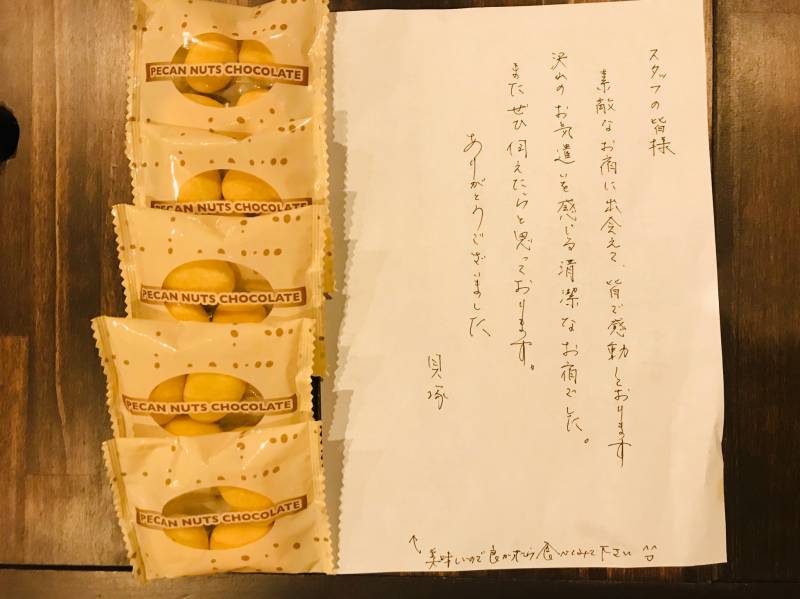 スタッフの皆様
素敵なお宿に出会えて、皆で感動しております
沢山のお気遣いを感じる清潔なお宿でした。
またぜひ伺えたらと思っております。
ありがとうございました
貝塚
↑美味しいので良かったら食べてみて下さい^^
PECAN NUTS CHOCOLATE
PECAN NUTS CHOCOLATE
PECAN NUTS CHOCOLATE
PECAN NUTS CHOCOLATE
PECAN NUTS CHOCOLATE